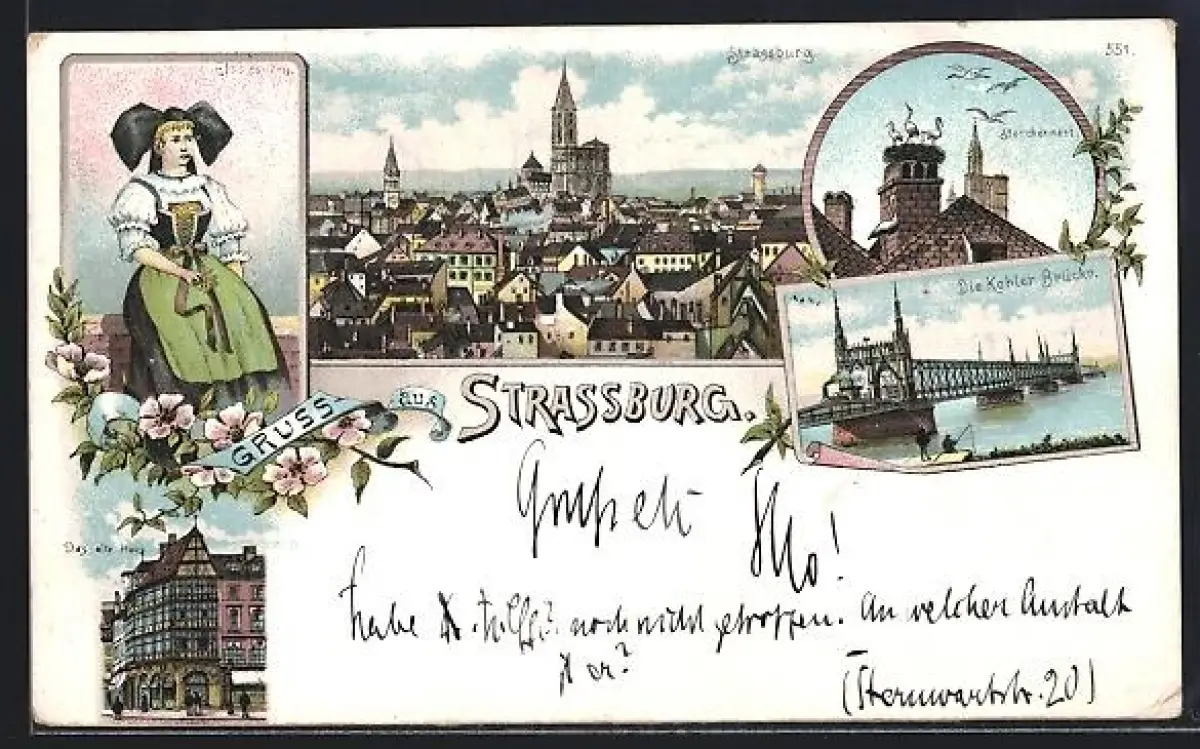 Strassburg
551.
Storchennest.
Die Kehler Brücke.
GRUSS AUS STRASSBURG.
Das alte Haus
habe noch nicht getroffen. An welcher Anstalt
ist er?
(Sternwartstr. 20)